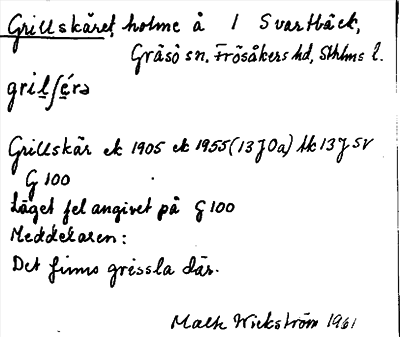 Grillskäret holme å 1 Svartbäck,
Gräsö sn. Frösåkers hd, Sthlms l.
grilʃérə
Grillskär ek 1905 ek 1955 (13J0a) tk 13J SV
G 100
Läget fel angivet på G 100
Meddelaren:
Det finns grissla där.
Wickström 1961